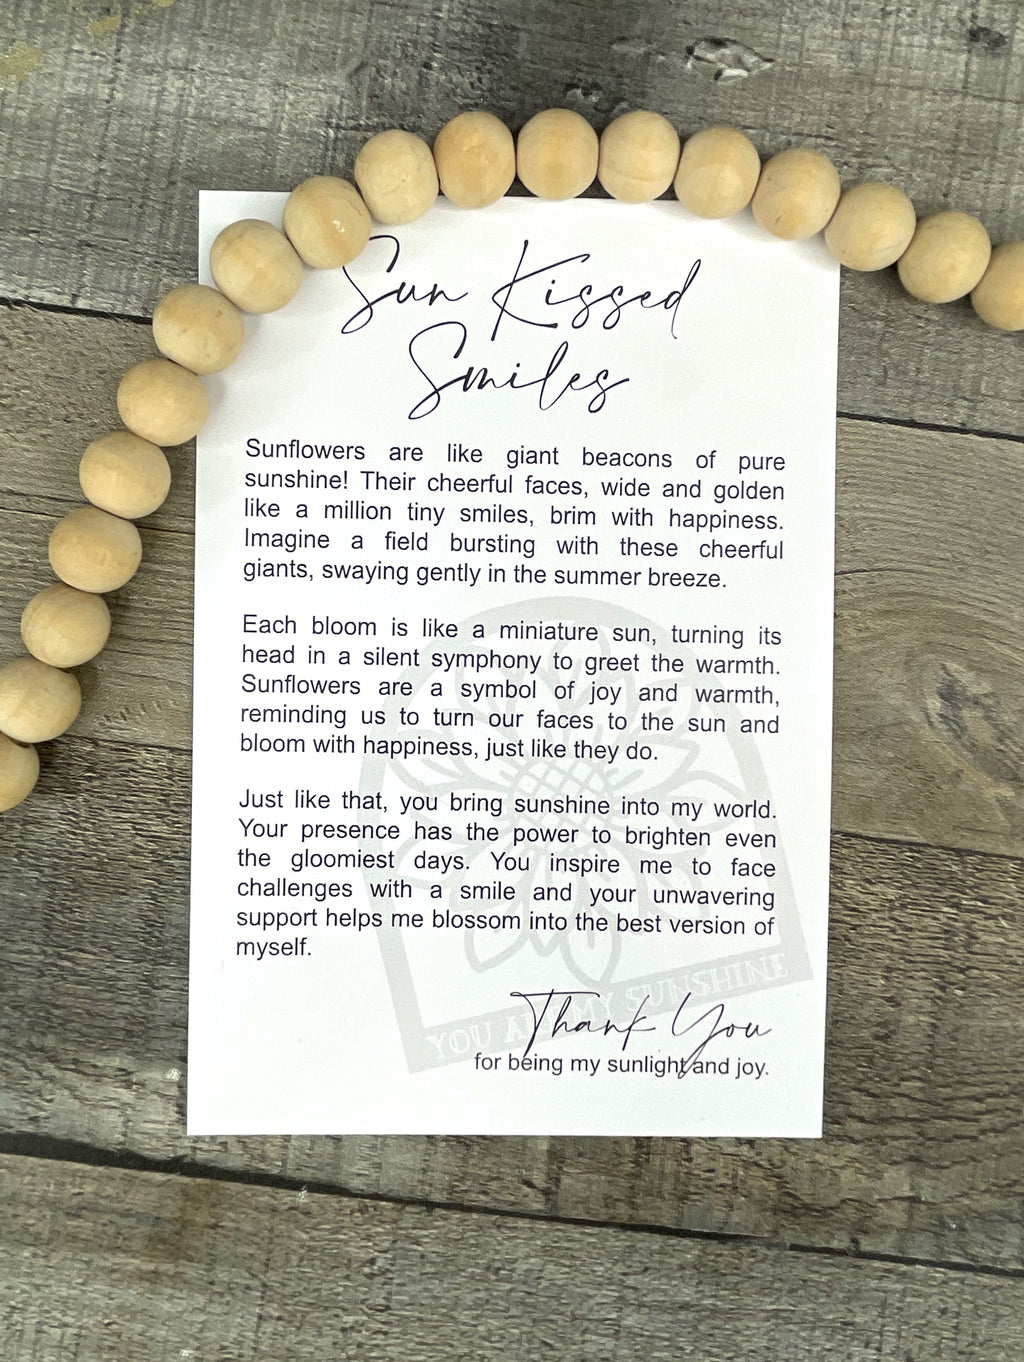 Sun Kissed
Smiles
Sunflowers are like giant beacons of pure
sunshine! Their cheerful faces, wide and golden
like a million tiny smiles, brim with happiness.
Imagine a field bursting with these cheerful
giants, swaying gently in the summer breeze.
Each bloom is like a miniature sun, turning its
head in a silent symphony to greet the warmth.
Sunflowers are a symbol of joy and warmth,
reminding us to turn our faces to the sun and
bloom with happiness, just like they do.
Just like that, you bring sunshine into my world.
Your presence has the power to brighten even
the gloomiest days. You inspire me to face
challenges with a smile and your unwavering
support helps me blossom into the best version of
myself.
YOU ARE MY SUNSHINE
Thank You
for being my sunlight and joy.